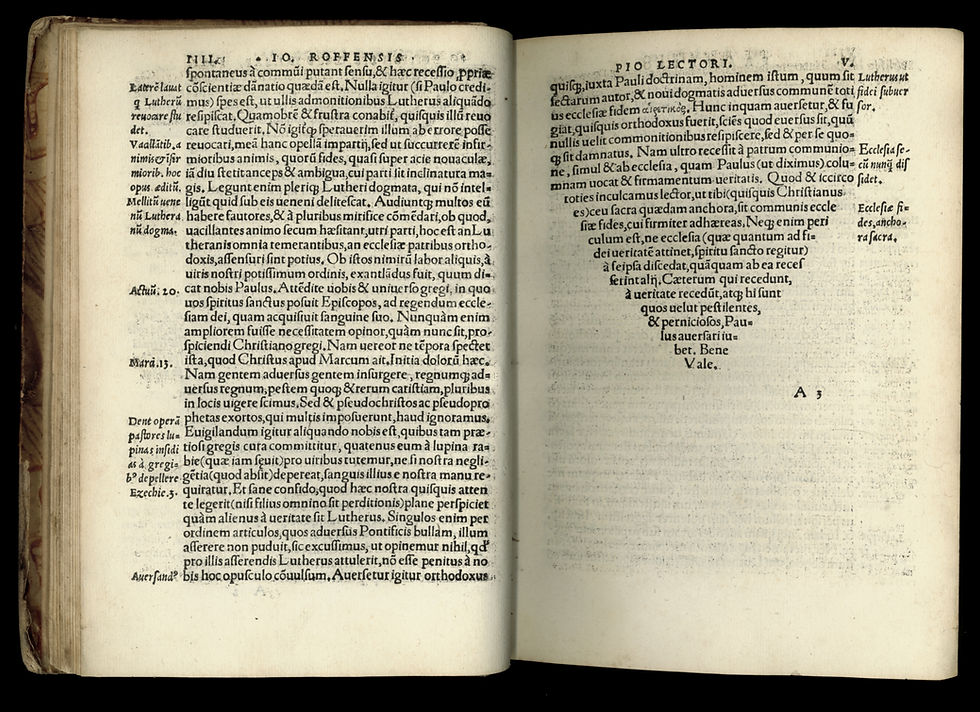 IIII. IO. ROFFENSIS
spontaneus à commũi putant sensu,& hæc recessio ꝓpriæ
cõscientiæ dãnatio quædã est. Nulla igitur (si Paulo credi-
mus) spes est, ut ullis admonitionibus Lutherus aliquãdo
resipiscat. Quamobrẽ & frustra conabit̃, quisquis illũ reuo
care studuerit. Nõ igit̃ꝗ sperauerim illum ab errore posse
reuocari, meã hanc operã impartij, sed ut succurrerẽ infir-
mioribus animis, quorũ sides, quasi super acie nouaculæ,
iã diu stetit anceps & ambigua, cui parti sit inclinatura ma-
gis. Legunt enim pleriꝗ Lutheri dogmata, qui nõ intel-
ligũt quid sub eis ueneni delitescat. Audiuntꝗ multos eũ
habere fautores,& à pluribus mirifice cõmẽdari, ob quod,
uacillantes animo secum hæsitant, utri parti, hoc est an Lu
theranis omnia temerantibus, an ecclesiæ patribus ortho-
doxis, assensuri sint potius. Ob istos nimirũ labor aliquis, à
uiris nostri potissimum ordinis, exantlãdus fuit, quum di-
cat nobis Paulus. Attẽdite uobis & uniuerso gregi, in quo
uos spiritus sanctus posuit Episcopos, ad regendum eccle-
siam dei, quam acquisiuit sanguine suo. Nunquàm enim
ampliorem fuisse necessitatem opinor, quàm nunc sit, pro-
spiciendi Christiano gregi. Nam uereor ne tẽpora spectet
ista, quod Christus apud Marcum ait. Initia dolorũ hæc.
Nam gentem aduersus gentem insurgere, regnumꝗ ad-
uersus regnum, pestem quoꝗ & rerum caristiam, pluribus
in locis uigere scimus. Sed & pseudochristos ac pseudopro
phetas exortos, qui multis imposuerunt, haud ignoramus.
Euigilandum igitur aliquando nobis est, quibus tam præ-
tiosi gregis cura committitur, quatenus eum à lupina ra-
bie(quæ iam sęuit)pro uiribus tutemur, ne si nostra negli-
gẽtia(quod absit)depereat, sanguis illius e nostra manu re-
quiratur. Et sane confido, quod hæc nostra quisquis atten
te legerit(nisi filius omnino sit perditionis)plane perspiciet
quàm alienus à ueritate sit Lutherus. Singulos enim per
ordinem articulos, quos aduersus Pontificis bullàm, illum
asserere non puduit, sic excussimus, ut opinemur nihil, qđ
pro illis asserendis Lutherus attulerit, nõ esse penitus à no
bis hoc opusculo cõuulsum. Auersetur igitur orthodoxus
Laterẽ lauat
q Lutherũ
reuocare stu
det.
Vacillãtib. a
nimis & ĩfir
miorib. hoc
opus æditũ.
Mellitũ uene
nũ Luthera
nũ dogma.
Actuũ. 20.
Marci. 13.
Dent operã
pastores lu-
pinas insidi
as à gregi-
bꝰ depellere
Ezechie. 3.
Auersandꝰ
PIO LECTORI. V.
quisꝗ, iuxta Pauli doctrinam, hominem istum, quum sit
sectarum autor,& noui dogmatis aduersus communẽ toti,
us ecclesiæ fidem αἱρετικός. Hunc inquam auersetur,& fu
giat, quisquis orthodoxus fuerit, sciẽs quod euersus sit, quũ
nullis uelit commonitionibus resipiscere, sed & per se quo-
ꝗ sit damnatus. Nam ultro recessit à patrum communio-
ne, simul & ab ecclesia, quam Paulus (ut diximus) colu-
mnam uocat & firmamentum ueritatis. Quod & iccirco
toties inculcamus lector, ut tibi(quisquis Christianus
es)ceu sacra quædam anchora, sit communis eccle
siæ fides, cui firmiter adhæreas. Neꝗ enim peri
culum est, ne ecclesia (quæ quantum ad fi-
dei ueritatẽ attinet, spiritu sancto regitur)
à seipsa discedat, quãquam ab ea reces
serint alij. Cæterum qui recedunt,
à ueritate recedũt, atꝗ hi sunt
quos uelut pestilentes,
& perniciosos, Pau-
lus auersari iu-
bet. Bene
Vale.
Lutherus ut
fidei subuer
sor.
Ecclesia se-
cũ nunꝗ dis
sidet.
Ecclesiæ fi-
des, ancho-
ra sacra.
A 3